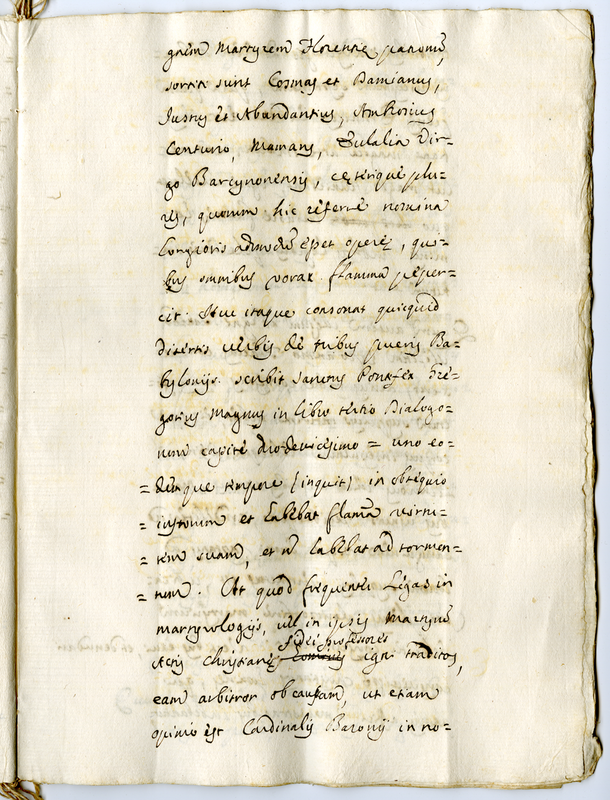 gnem Martyrem Florentię patronū,
sortiti sunt Cosmas et Damianus,
Justus et Abundantius, Ambrosius
Centurio, Mamans, Eulalia Vir=
go Barcynonensis, cęterique plu=
res, quorum hic referre nomina
longioris admodū esset operę, qui=
bus omnibus vorax flamma peper=
cit. Huc itaque consonat quicquid
disertis verbis de tribus pueris Ba=
bylonijs scribit sanctus Pontifex Gre=
gorius Magnus in libro tertio Dialogo=
rum capite duodevicesimo = uno eo=
= demque tempore (inquit) in obsequio
= iustorum et habebat flāma virtu=
= tem suam, et nō habebat ad tormen=
= tum. At quod frequenter legas in
martyrologijs, vel in ipsis Martyrū
Actis Christianę fidei professores igni traditos,
eam arbitror ob causam, ut etiam
opinio est Cardinalis Baronij in no=